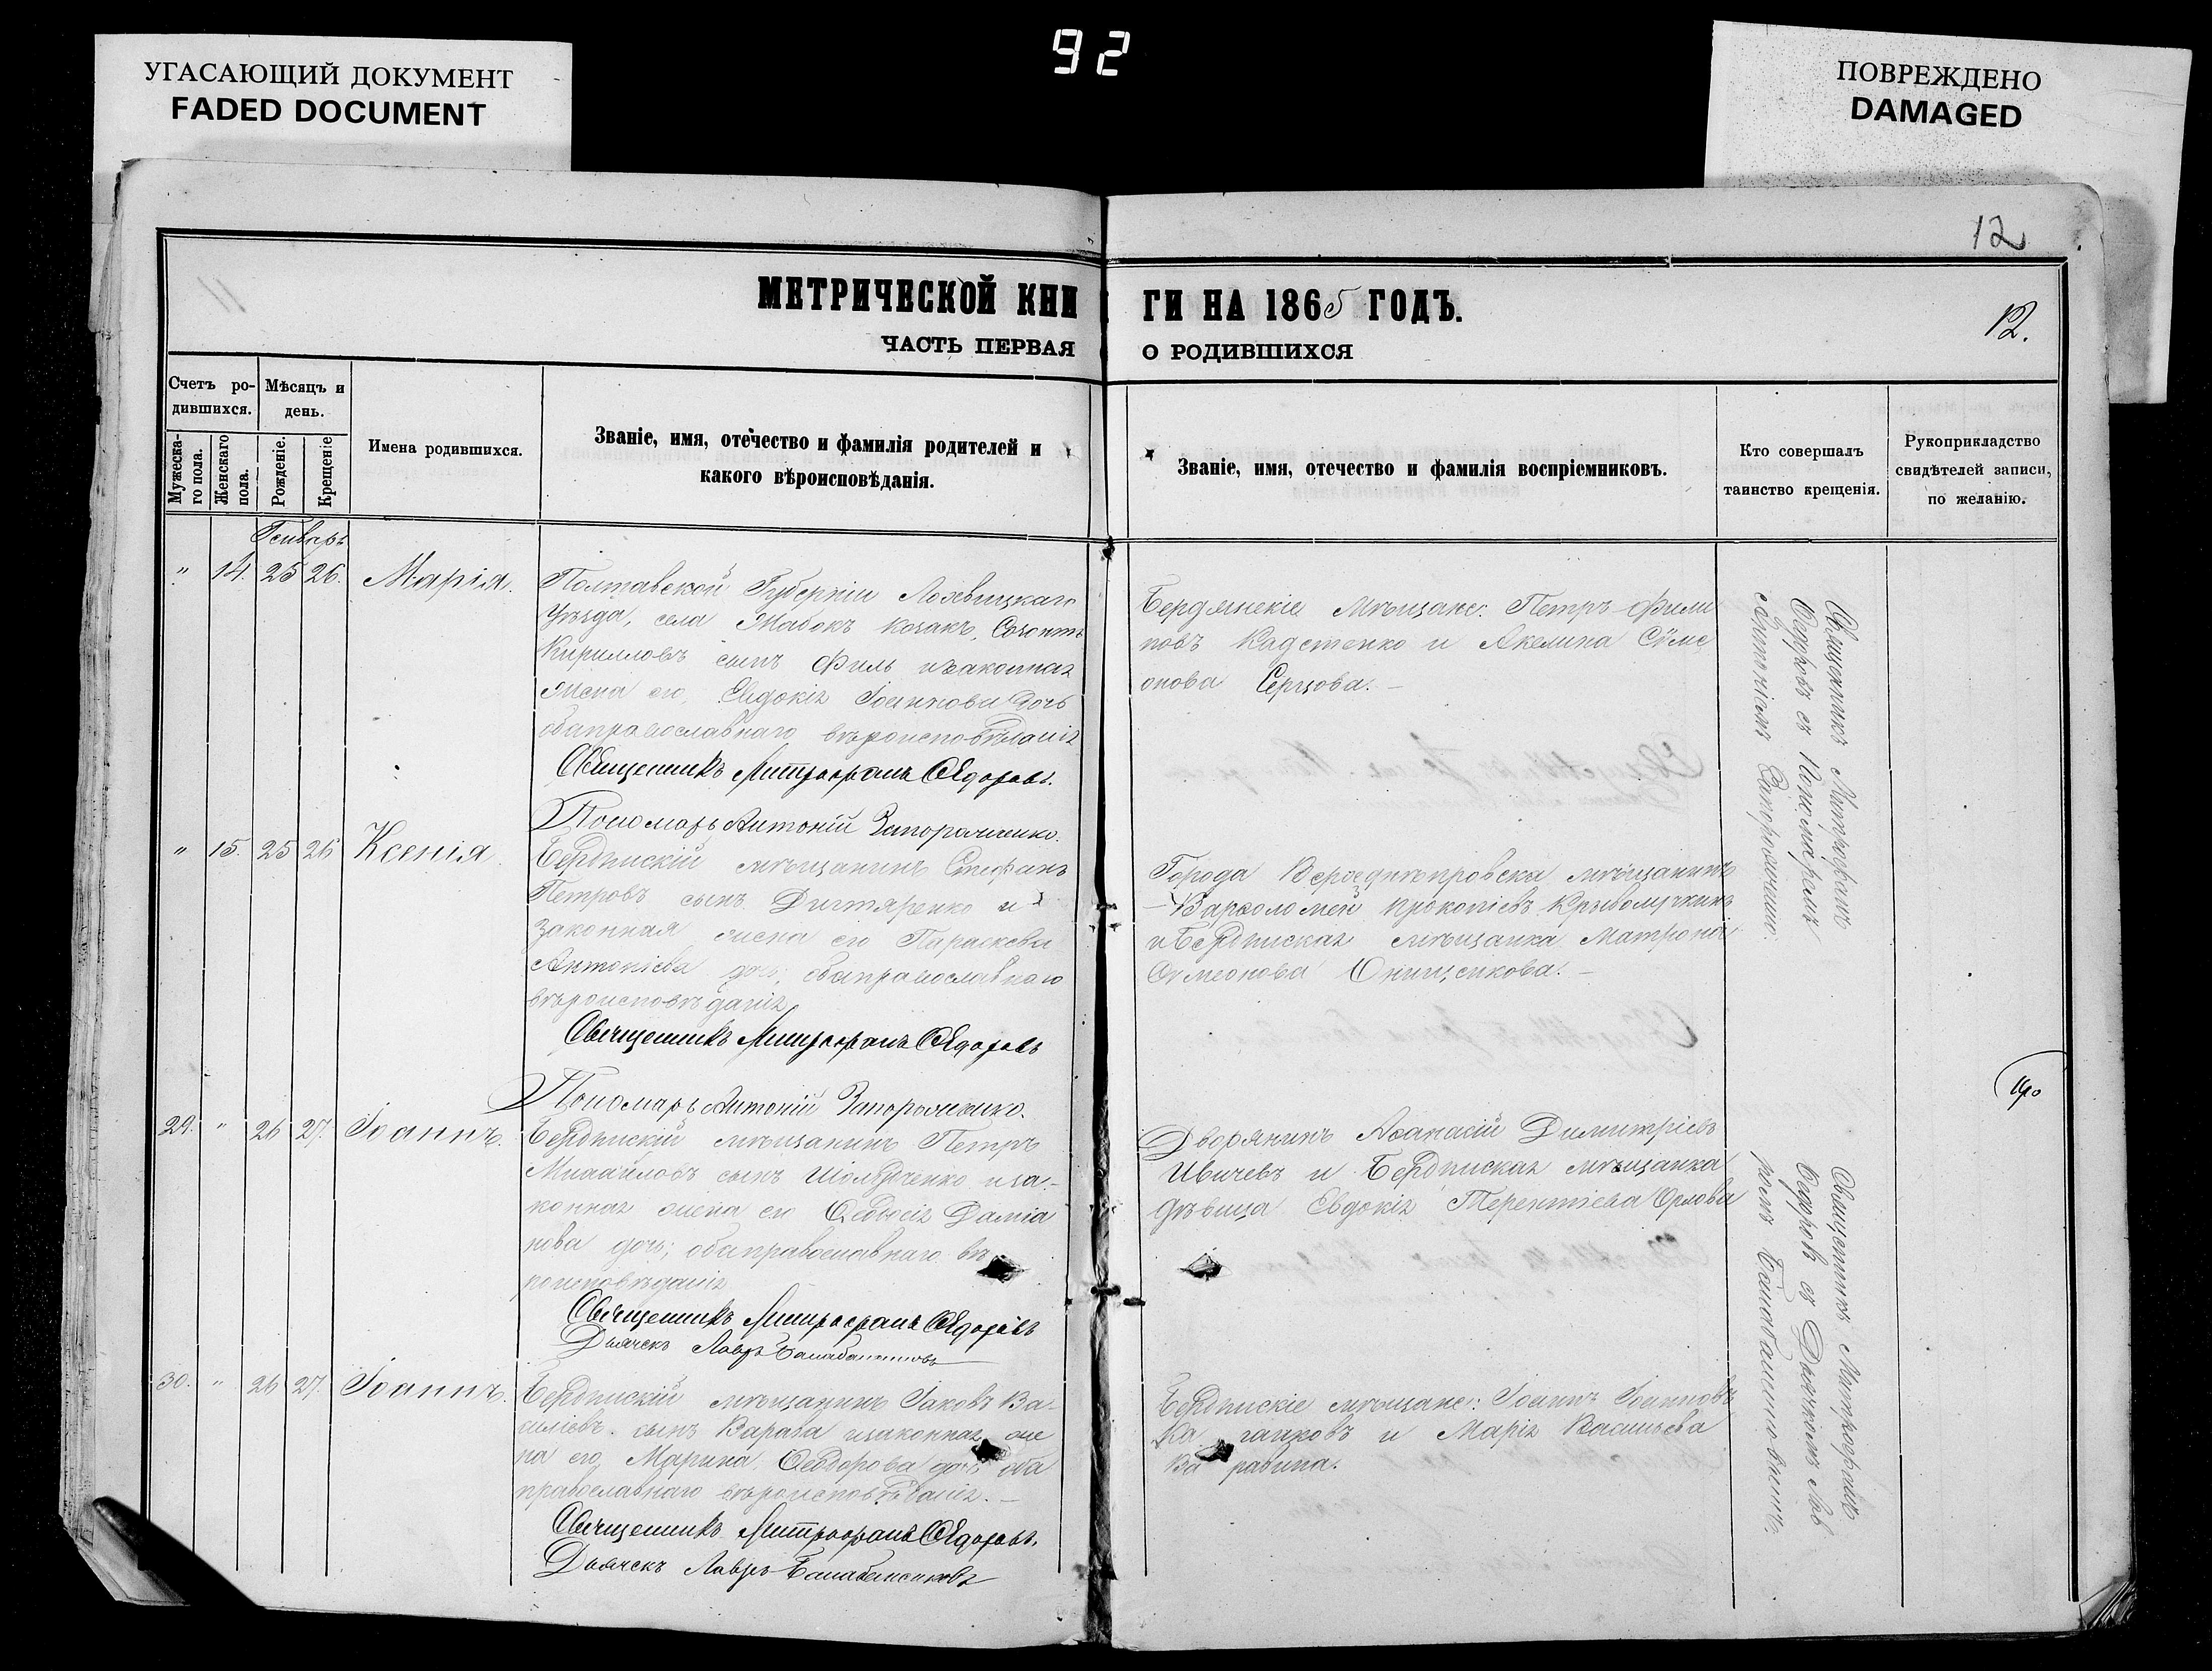 92
УГАСАЮЩИЙ ДОКУМЕНТ
FADED DOCUMENT
ПОВРЕЖДЕНО
DAMAGED
12
МЕТРИЧЕСКОЙ КНИ
ГИ НА 1865 ГОДЪ.
12.
ЧАСТЬ ПЕРВАЯ
О РОДИВШИХСЯ
Счетъ ро-
дившихся.
Мѣсяцъ и
день.
Мужеска-
го пола.
Женскаго
пола.
Рожденіе.
Крещеніе
Имена родившихся.
Званіе, имя, отечество и фамилія родителей и
какого вѣроисповѣданія.
Званіе, имя, отечество и фамилія воспріемниковъ.
Кто совершалъ
таинство крещенія.
Рукоприкладство
свидѣтелей записи,
по желанію.
Генварь
" 14. 25 26. Марія.
Полтавской Губерніи Лохвицкаго
Уѣзда, села козакъ, Созонтъ
Кирилловъ сынъ Филь изаконная
жена его, Евдокія Іоаннова дочь
обаправославнаго вѣроисповѣданія
Священникъ Митрофанъ Ѳедоровъ.
Пономарь Антоній Запорожченко.
Бердянскіе мѣщане: Петръ Фили
повъ и Акелина Сѵме
онова Серцова. —
Священникъ Митрофанъ
Ѳедоровъ съ Пономаремъ
Антоніемъ Запорожченко.
" 15. 25 26 Ксенія
Бердянскій мѣщанинъ Стефанъ
Петровъ сынъ Дигтяренко и
законная жена его Параскева
Антоніева дочь; обаправославнаго
вѣроисповѣданія
Священникъ Митрофанъ Ѳедоровъ
Пономарь Антоній Запорожченко.
Города Верхеднѣпровска мѣщанинъ
Варѳоломей Прокопіевъ
и Бердянская мѣщанка Матрона
Онищенкова. —
29. " 26 27. Іоаннъ.
Бердянскій мѣщанинъ Петръ
Михайловъ сынъ иза-
конная жена его Ѳеодосія Даміа
нова дочь; обаправославнаго вѣ
роисповѣданія
Священникъ Митрофанъ Ѳедоровъ
Дьячекъ Лавръ Балабанениковъ
Дворянинъ Аѳанасій Димитріевъ
Ивичевъ и Бердянская мѣщанка
дѣвица Евдокія Терентіева Орлова
Священникъ Митрофанъ
Ѳедоровъ съ Дьячкомъ Лав
ромъ
30. " 26 27. Іоаннъ.
Бердянскій мѣщанинъ Іаковъ Ва-
силіевъ сынъ Варава изаконная же
на его Марина Ѳеодорова дочь оба
православнаго вѣроисповѣданія. —
Священникъ Митрофанъ Ѳедоровъ.
Дьячекъ Лавръ Балабанениковъ
Бердянскіе мѣщане: Іоаннъ Іоанновъ
и Марія Васильева
Ва равина.